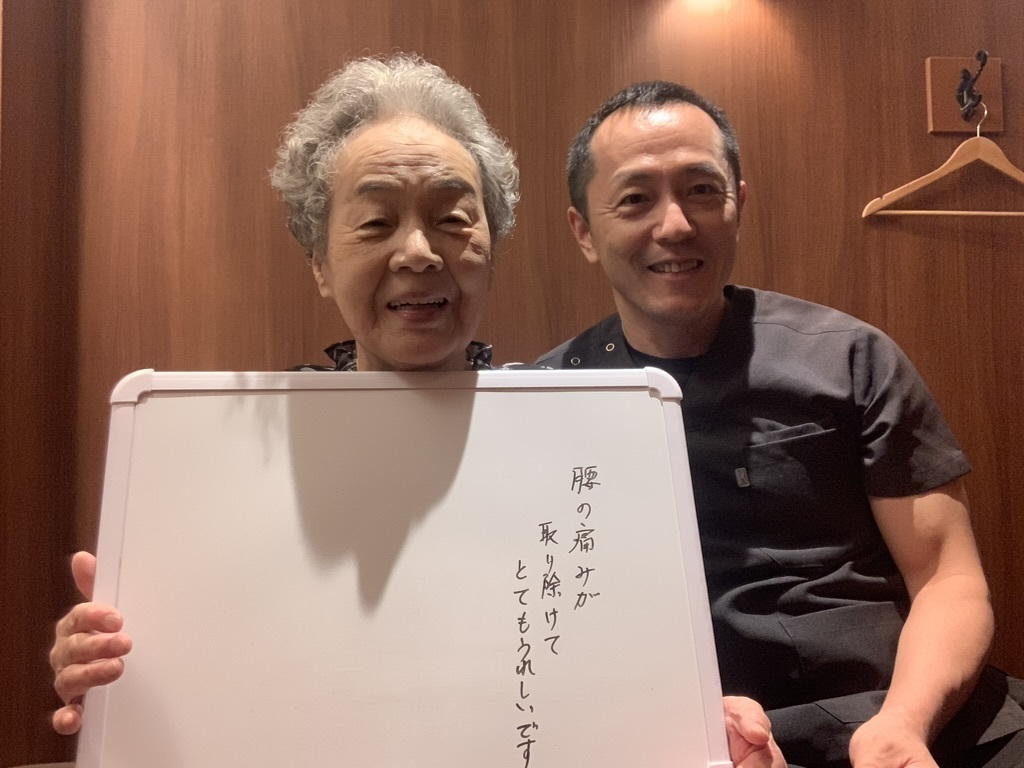 腰の痛みが
取り除けて
とてもうれしいです